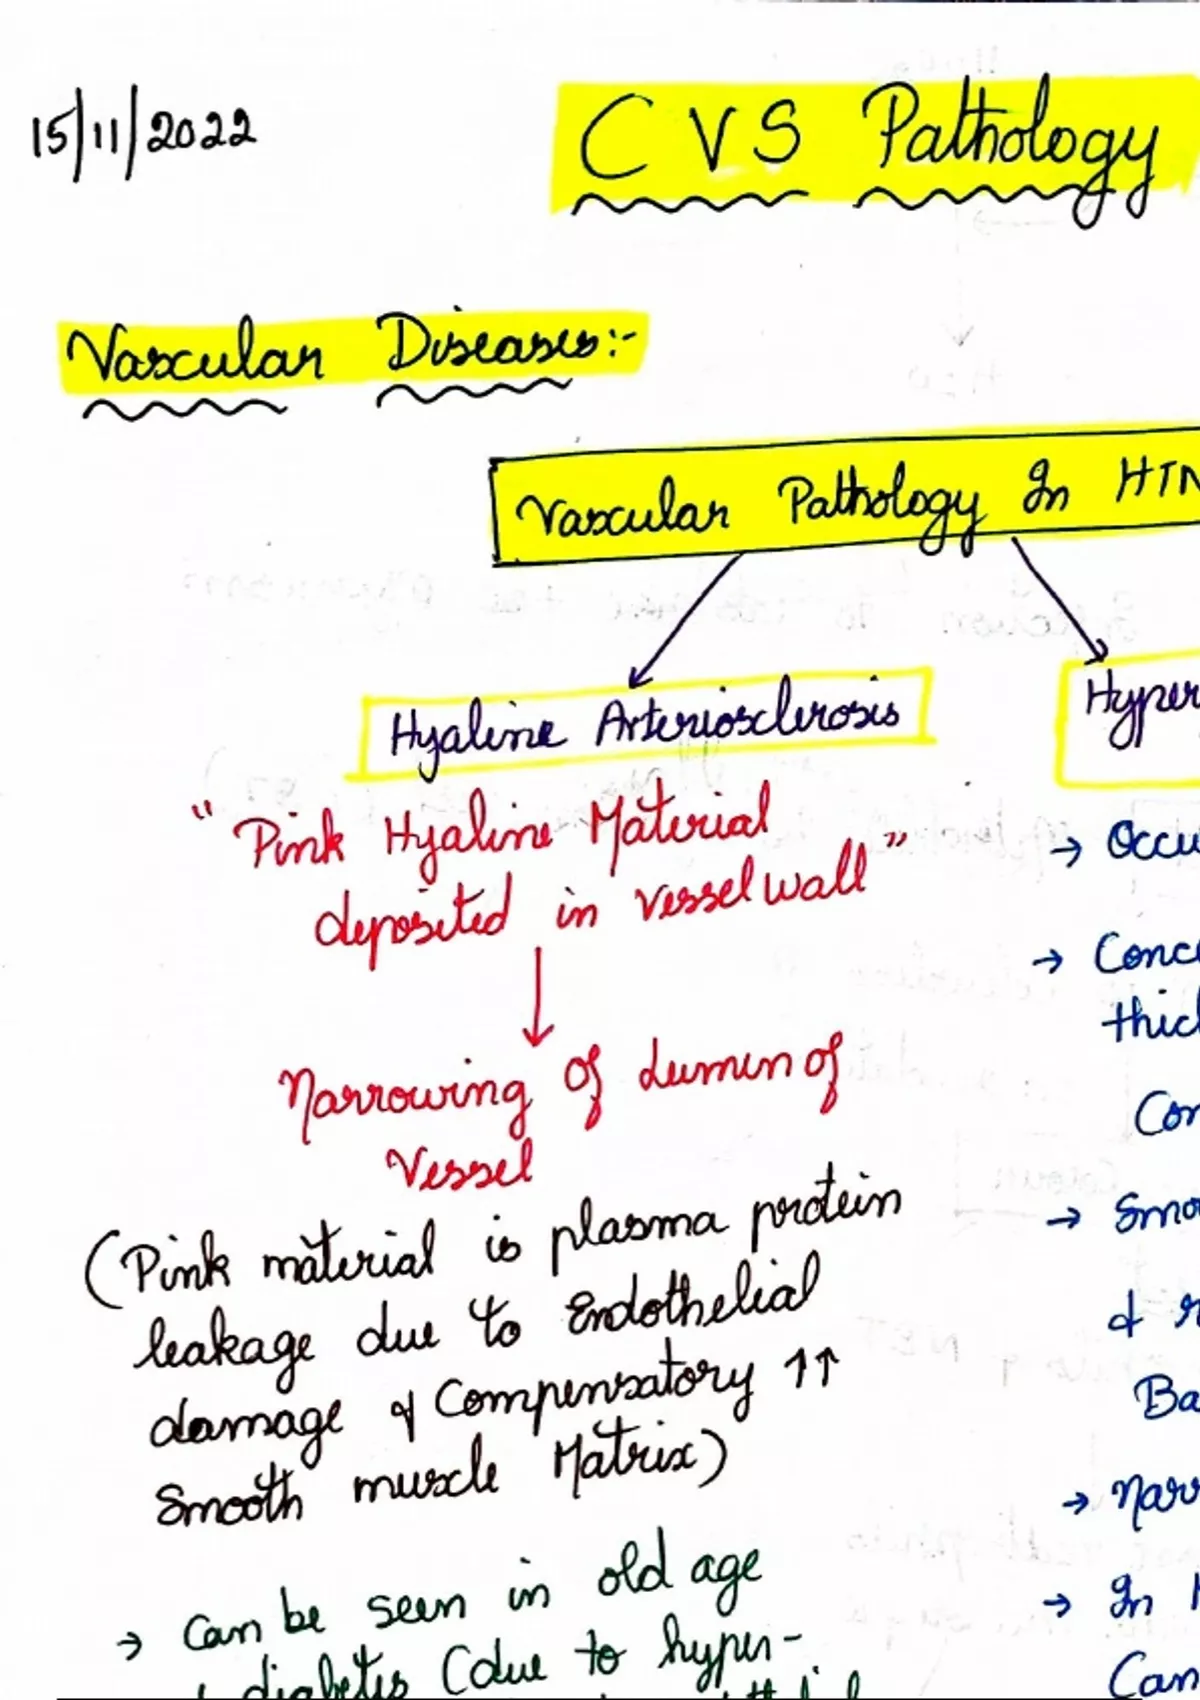 15/11/2022
CVS Pathology
Vascular Diseases:-
Vascular Pathology In HTN
Hyaline Arteriosclerosis
"Pink Hyaline Material
deposited in vessel wall"
↓
Narrowing of Lumen of
Vessel
(Pink material is plasma protein
leakage due to Endothelial
damage & Compensatory ↑↑
Smooth muscle Matrix)
→ Can be seen in old age
diabetis (due to hyper-
Hyper
→ Occu
→ Conce
thick
Con
→ Smo
&
Ba
→ Narr
→ In
Can